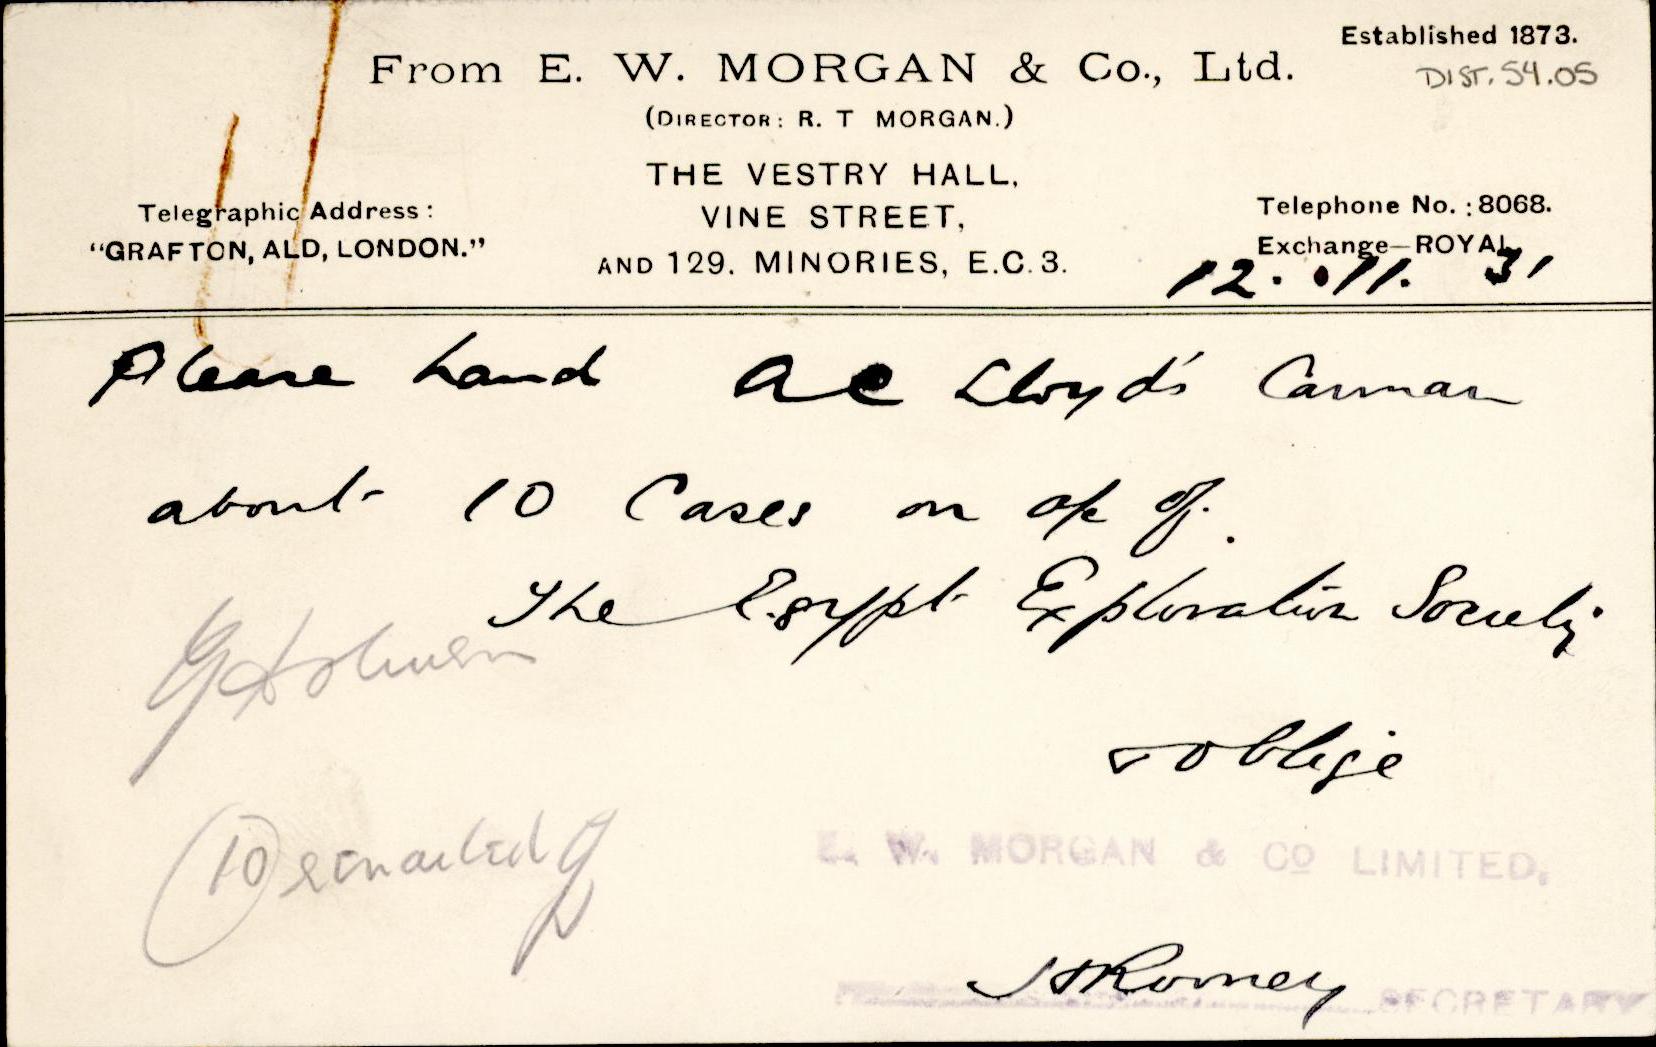 Established 1873.
From E. W. MORGAN & Co., Ltd.
DIST. 54.05
(DIRECTOR: R. T MORGAN.)
THE VESTRY HALL,
Telegraphic Address: VINE STREET, Telephone No.: 8068.
"GRAFTON, ALD, LONDON." AND 129. MINORIES, E.C.3. Exchange—ROYAL
12. 11. 31
Please hand Lloyd's Carman
about 10 Cases on a/c of.
The Egypt Exploration Society
& oblige
10
E. W. MORGAN & CO LIMITED.
Romney
SECRETARY